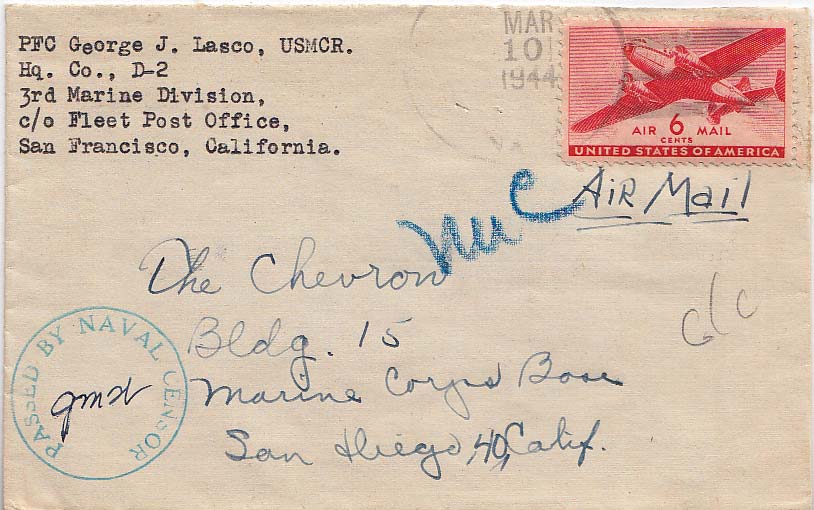 PFC George J. Lasco, USMCR.
Hq. Co., D-2
3rd Marine Division,
c/o Fleet Post Office,
San Francisco, California.
MAR
10
1944
AIR 6 MAIL
CENTS
UNITED STATES OF AMERICA
Air Mail
The Chevron
Bldg. 15
Marine Corps Base
San Diego, 40, Calif.
c/c
PASSED BY NAVAL CENSOR